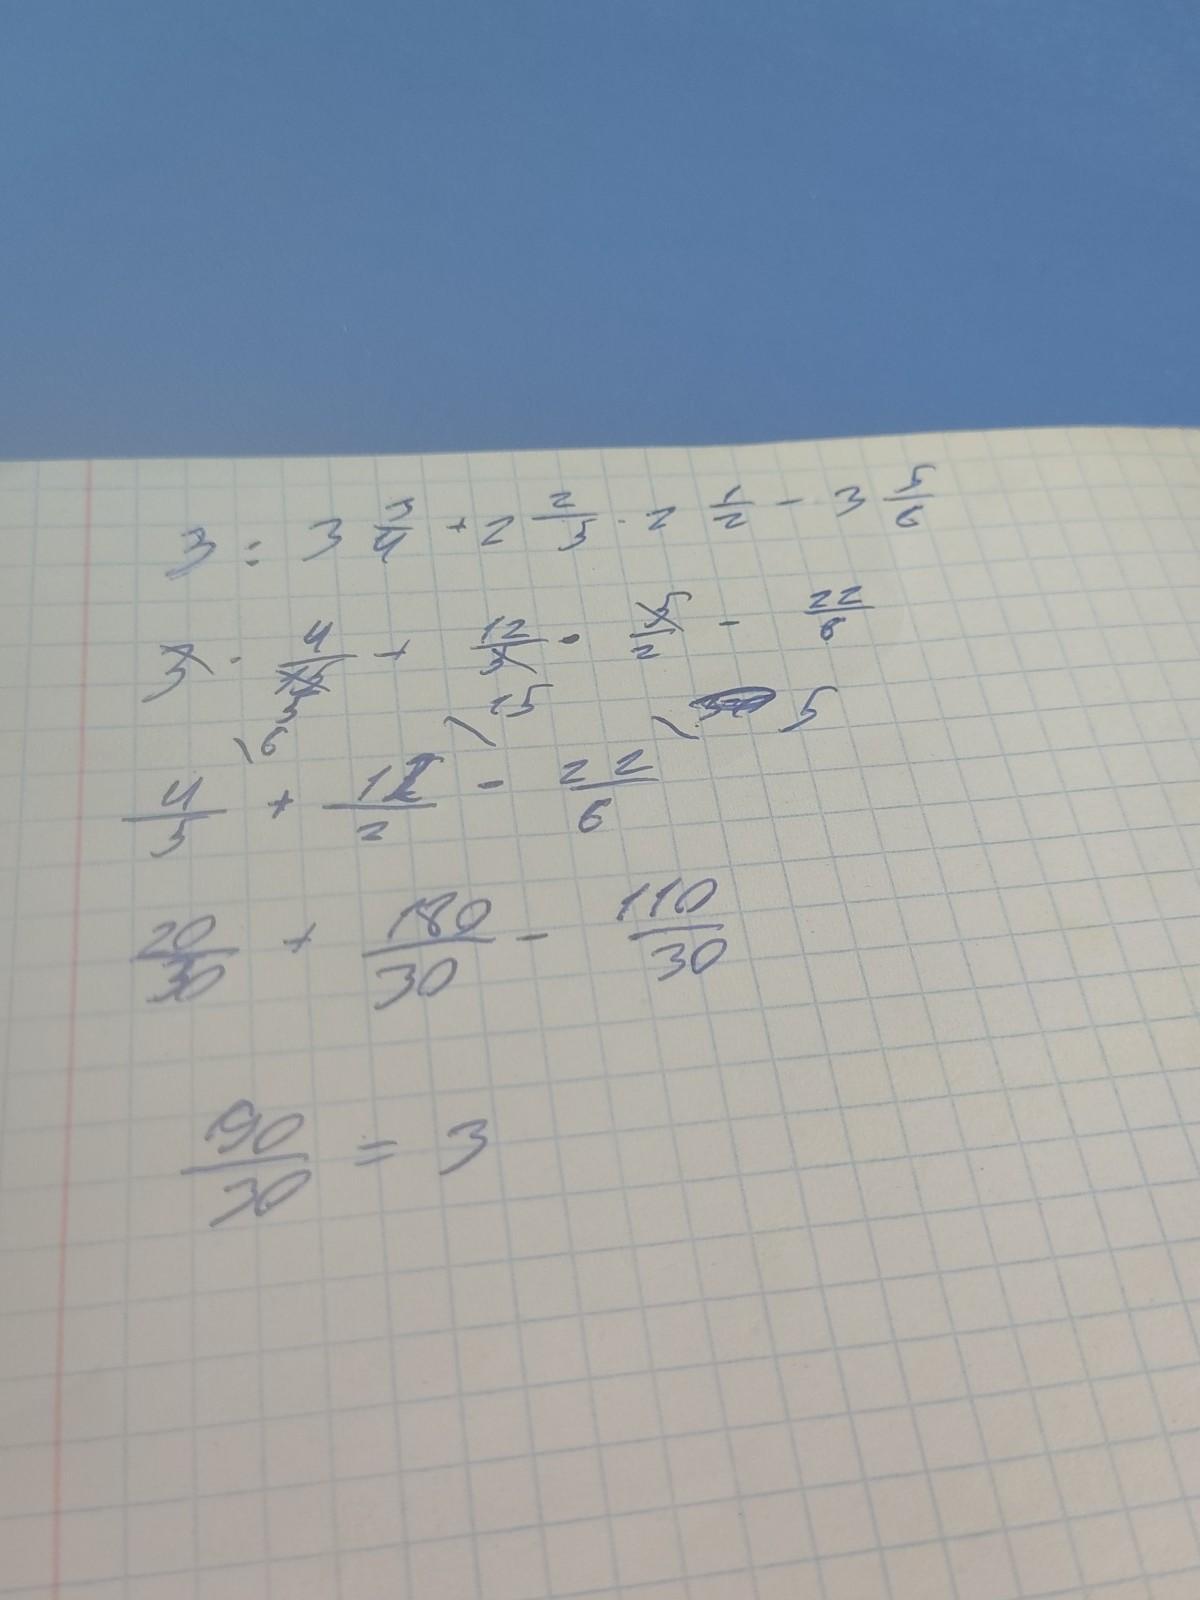 3 : 3 3/4 + 2 2/5 · 2 1/2 - 3 5/6
3 · 4/15 + 12/5 · 5/2 - 22/6
5
\6 \15 \ 5
4/5 + 12/2 - 22/6
20/30 + 180/30 - 110/30
90/30 = 3